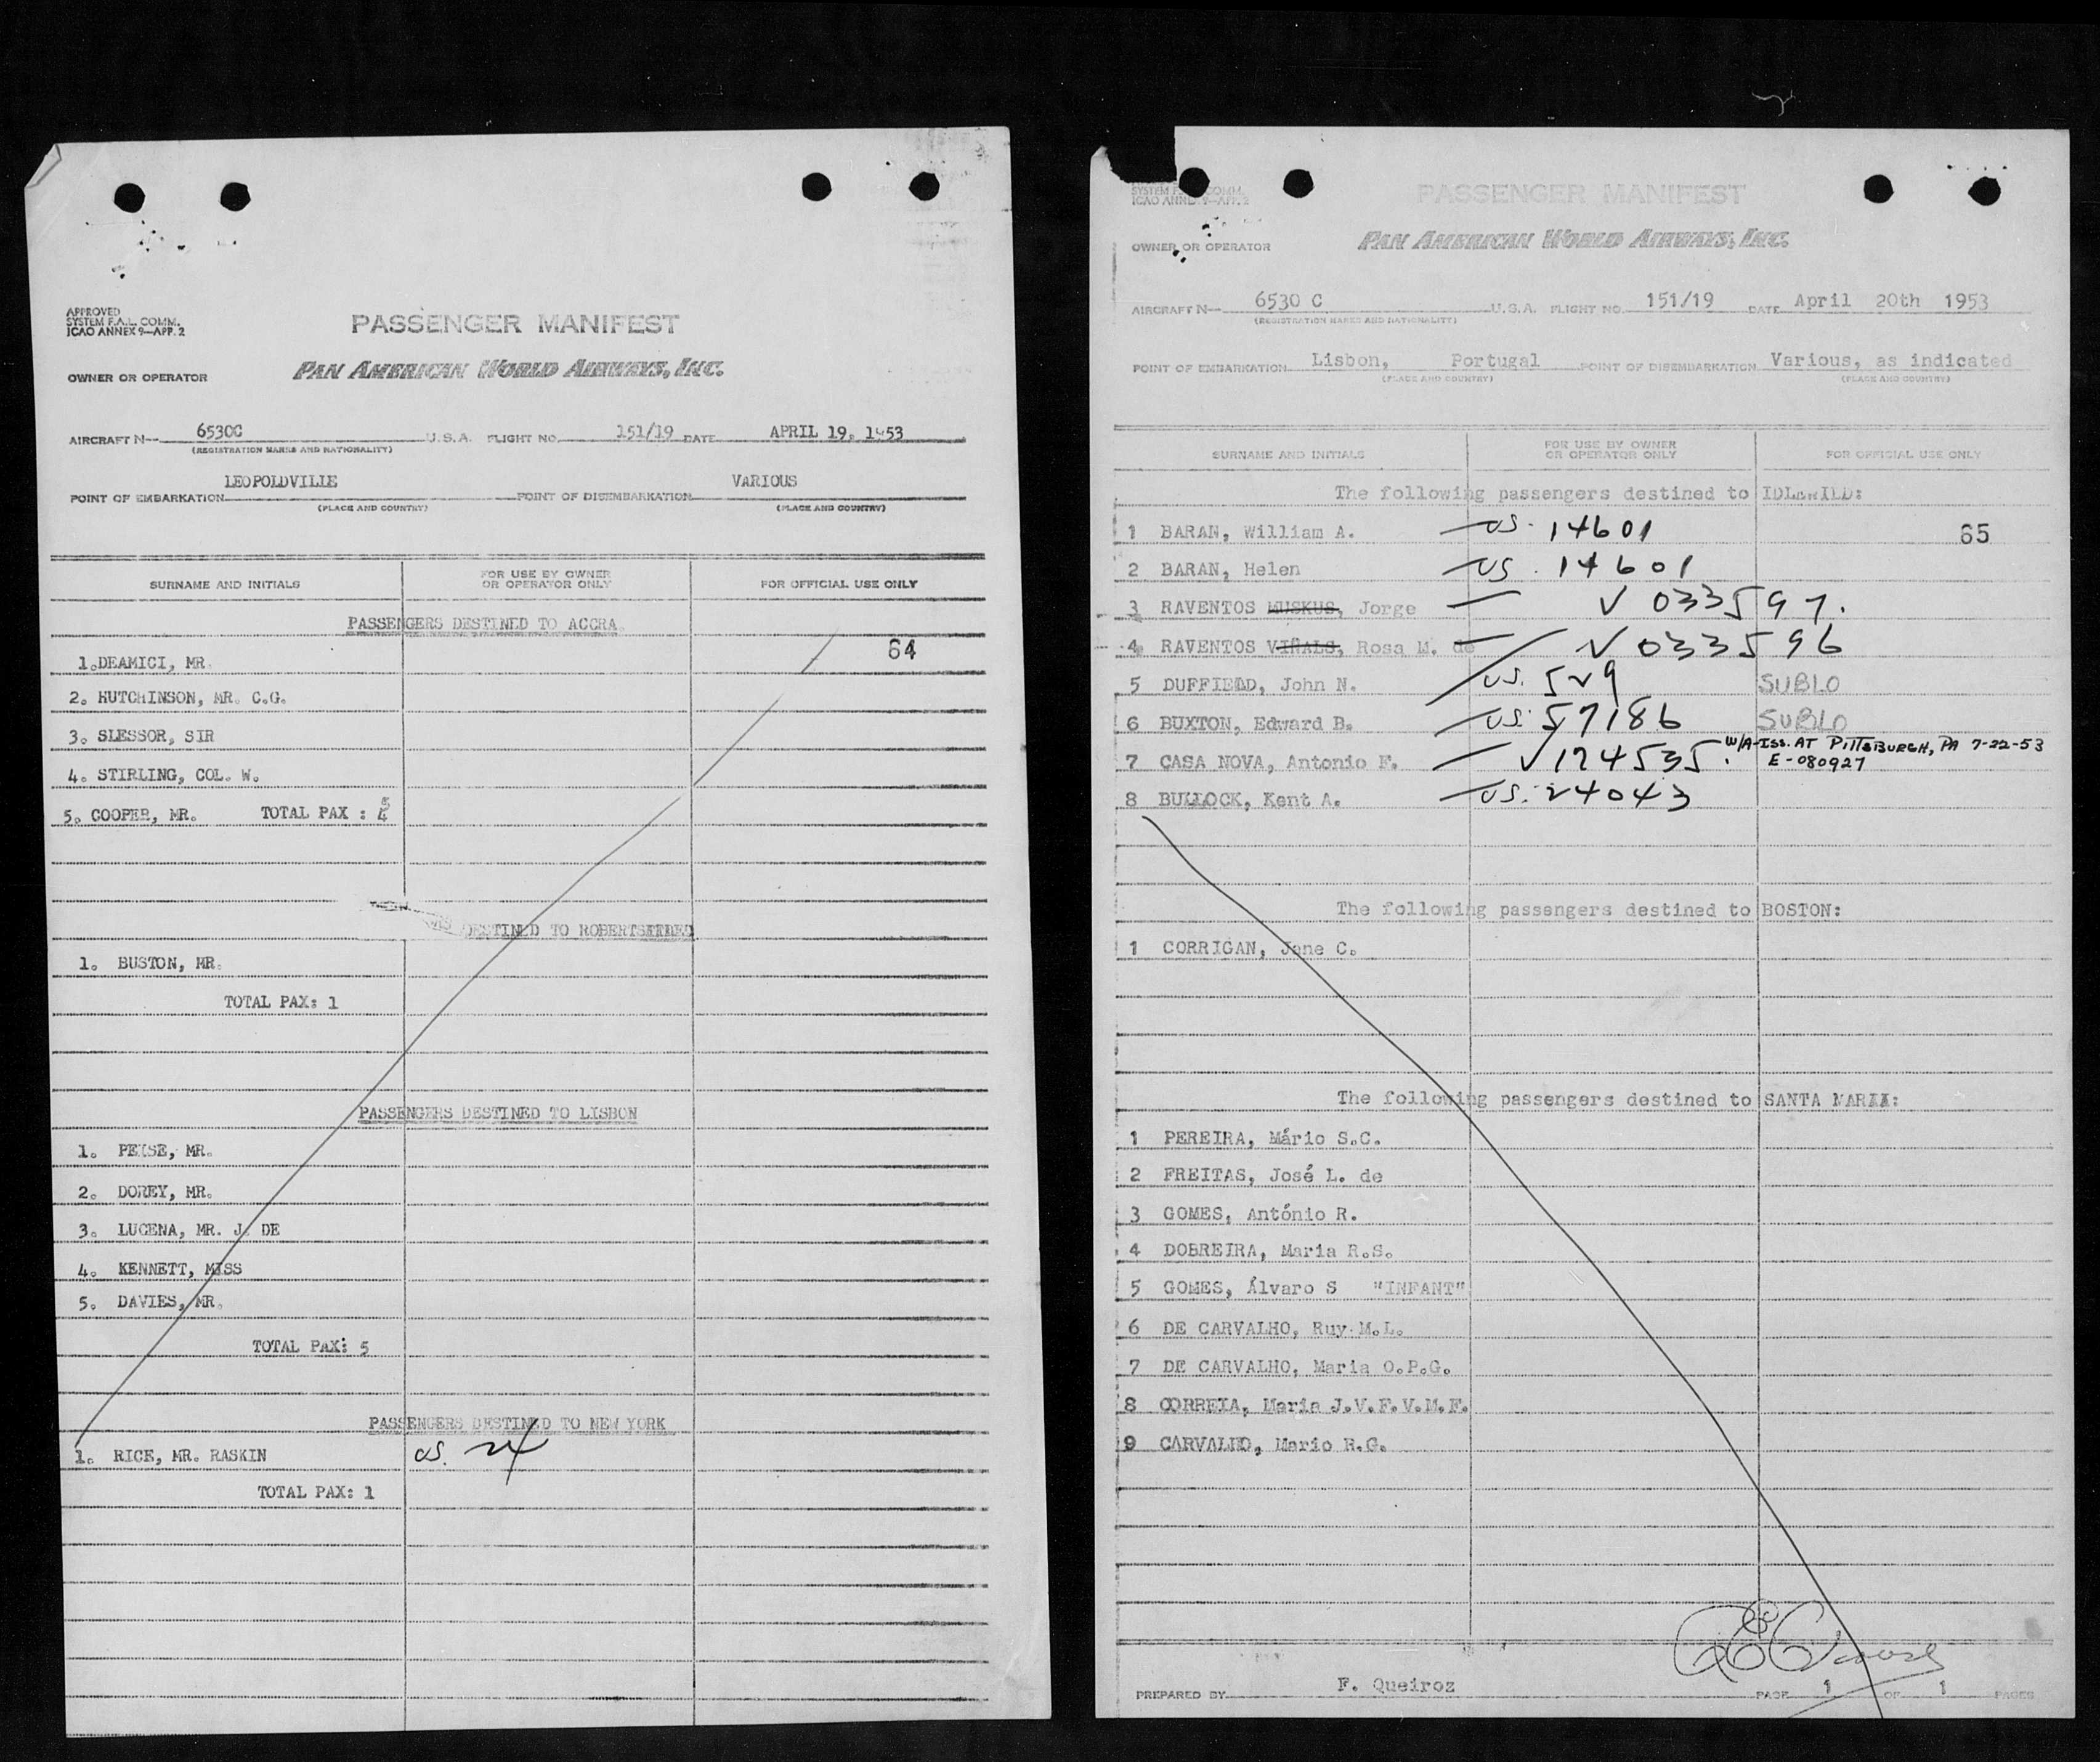 APPROVED
SYSTEM F.A.L. COMM.
ICAO ANNEX 9—APP. 2
PASSENGER MANIFEST
OWNER OR OPERATOR PAN AMERICAN WORLD AIRWAYS, INC.
AIRCRAFT N— 6530C U.S.A. FLIGHT NO. 151/19 DATE APRIL 19, 1953
(REGISTRATION MARKS AND NATIONALITY)
LEOPOLDVILLE VARIOUS
POINT OF EMBARKATION POINT OF DISEMBARKATION
(PLACE AND COUNTRY) (PLACE AND COUNTRY)
SURNAME AND INITIALS FOR USE BY OWNER OR OPERATOR ONLY FOR OFFICIAL USE ONLY
PASSENGERS DESTINED TO ACCRA
64
1. DEAMICI, MR.
2. HUTCHINSON, MR. C.G.
3. SLESSOR, SIR
4. STIRLING, COL. W.
5. COOPER, MR. TOTAL PAX : 5
DESTINED TO
1. BUSTON, MR.
TOTAL PAX: 1
PASSENGERS DESTINED TO LISBON
1. PEISE, MR.
2. DOREY, MR.
3. LUCENA, MR. J. DE
4. KENNETT, MISS
5. DAVIES, MR.
TOTAL PAX: 5
PASSENGERS DESTINED TO NEW YORK
1. RICE, MR. RASKIN US. 24
TOTAL PAX: 1
SYSTEM F.A.L. COMM.
ICAO ANNEX 9—APP. 2
PASSENGER MANIFEST
OWNER OR OPERATOR PAN AMERICAN WORLD AIRWAYS, INC.
AIRCRAFT N— 6530 C U.S.A. FLIGHT NO. 151/19 DATE April 20th 1953
(REGISTRATION MARKS AND NATIONALITY)
POINT OF EMBARKATION Lisbon, Portugal POINT OF DISEMBARKATION Various, as indicated
(PLACE AND COUNTRY) (PLACE AND COUNTRY)
SURNAME AND INITIALS FOR USE BY OWNER OR OPERATOR ONLY FOR OFFICIAL USE ONLY
The following passengers destined to IDLEWILD:
1 BARAN, William A. US. 14601 65
2 BARAN, Helen US. 14601
3 RAVENTOS MUSKUS, Jorge V 033597.
4 RAVENTOS VIÑALS, Rosa M. de V 033596
5 DUFFIELD, John N. US. 529 SUBLO
6 BUXTON, Edward B. US. 57186 SUBLO
7 CASA NOVA, Antonio F. V174535. W/A-ISS. AT PITTSBURGH, PA 7-22-53
E-080927
8 BULLOCK, Kent A. US. 24043
The following passengers destined to BOSTON:
1 CORRIGAN, Jane C.
The following passengers destined to SANTA MARIA:
1 PEREIRA, Mário S.C.
2 FREITAS, José L. de
3 GOMES, António R.
4 DOBREIRA, Maria R.S.
5 GOMES, Álvaro S "INFANT"
6 DE CARVALHO, Ruy M.L.
7 DE CARVALHO, Maria O.P.G.
8 CORREIA, Maria J.V.F.V.M.F.
9 CARVALHO, Mario R.G.
PREPARED BY F. Queiroz PAGE 1 OF 1 PAGES